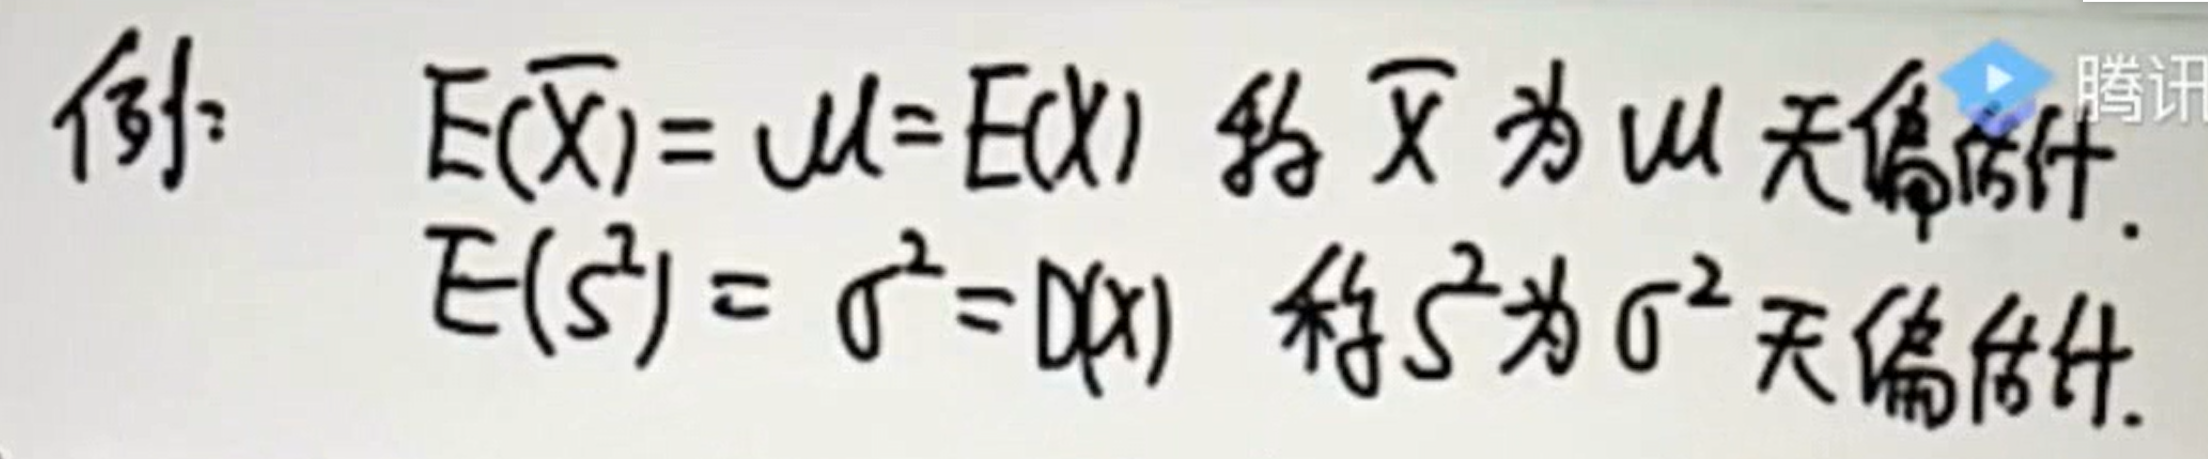 例: E(X̄) = μ = E(X) 称 X̄ 为 μ 无偏估计.
E(S²) = σ² = D(X) 称 S² 为 σ² 无偏估计.
腾讯